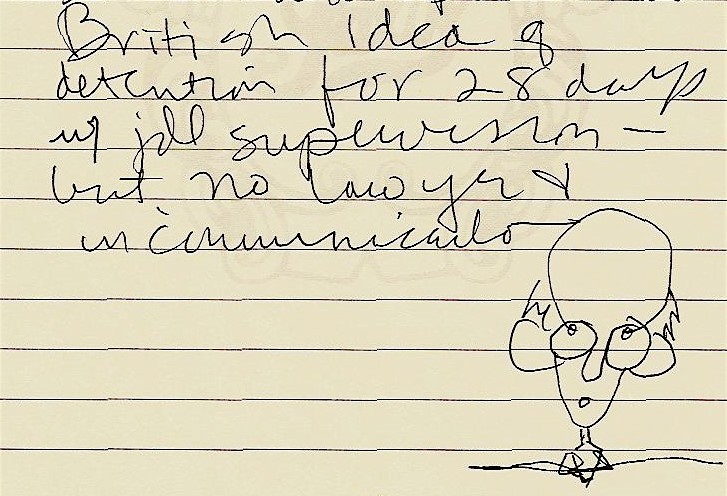 British Idea of
detention for 28 days
w/ jdl supervision —
but no lawyer &
incommunicado